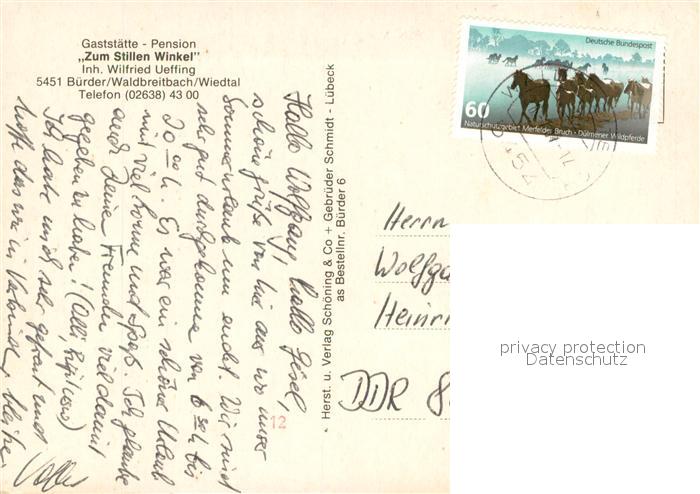 Gaststätte - Pension
„Zum Stillen Winkel"
Inh. Wilfried Ueffing
5451 Bürder/Waldbreitbach/Wiedtal
Telefon (02638) 43 00
Hallo Wolfgang! Hallo Gisel,
schöne Grüße von hier aus wo unser
Sommerurlaub nun endet. Wir sind
sehr gut durchgekommen von 6ooh bis
10ooh. Es war ein schöner Urlaub
mit viel Sonne und Spaß. Ich glaube
auch Deine Freunden viel damit
gegeben zu haben! (Alli,
Ich habe mich sehr gefreut und
hoffe das wir in Verbindung bleiben
Herst. u. Verlag Schöning & Co + Gebrüder Schmidt - Lübeck
as Bestellnr. Bürder 6
12
Deutsche Bundespost
60
Naturschutzgebiet Merfelder Bruch · Dülmener Wildpferde
545
Herrn
Wolfga
Heinri
DDR 8
privacy protection
Datenschutz